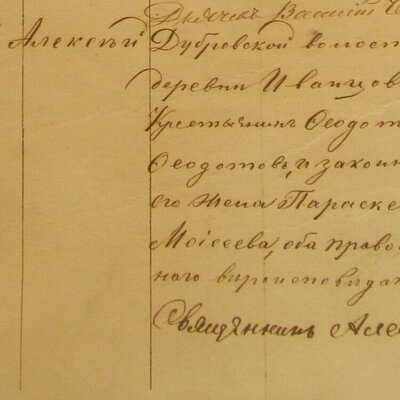 Дьячекъ Василій
Алексѣй
Дубровской волост
деревни Иванцов
Крестьянинъ Ѳеодот
Ѳеодотовъ, и законн
его жена Параске
Моісеева, оба право
наго вѣроисповѣдан
Священникъ Але